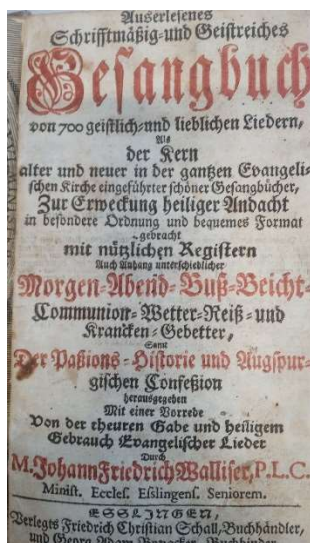 Auserlesenes
Schrifftmäßig-und Geistreiches
Gesangbuch
von 700 geistlich-und lieblichen Liedern,
Als
der Kern
alter und neuer in der gantzen Evangeli-
schen Kirche eingeführter schöner Gesangbücher,
Zur Erweckung heiliger Andacht
in besondere Ordnung und bequemes Format
gebracht
mit nützlichen Registern
Auch Anhang unterschiedlicher
Morgen-Abend-Buß-Beicht-
Communion-Wetter-Reiß-und
Krancken-Gebetter,
Samt
Der Paßions-Historie und Augspur-
gischen Confeßion
herausgegeben
Mit einer Vorrede
Von der theuren Gabe und heiligem
Gebrauch Evangelischer Lieder
Durch
M. Johann Friedrich Walliser, P. L. C.
Minist. Eccles. Eßlingens. Seniorem.
ESSLINGEN,
Verlegts Friedrich Christian Schall, Buchhändler,
und Georg Adam Buchbinder